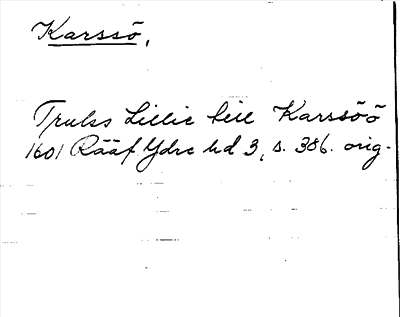 Karssö,
Trulss Lillie till Karssöö
1601 Rääf Ydre bd 3, s. 386. orig.